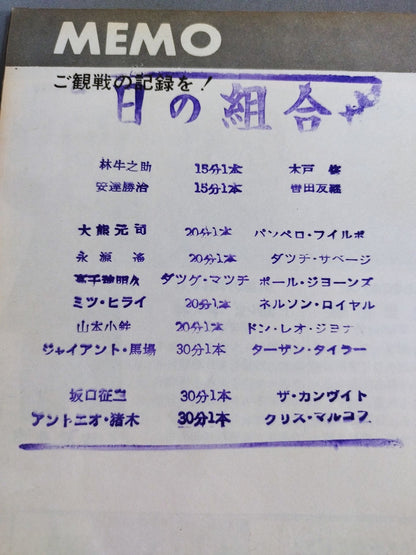 MEMO
ご観戦の記録を！
日の組合せ
林牛之助 15分1本 木戸修
安達勝治 15分1本
大熊元司 20分1本 バンペロ・フイルポ
永源遙 20分1本 ダツチ・サベージ
高千穂明久 ダツグ・マツチ ポール・ジヨーンズ
ミツ・ヒライ 20分1本 ネルソン・ロイヤル
山本小鉄 20分1本 ドン・レオ・ジヨナ
ジャイアント・馬場 30分1本 ターザン・タイラー
坂口征二 30分1本 ザ・カンヴイト
アントニオ・猪木 30分1本 クリス・マルコフ